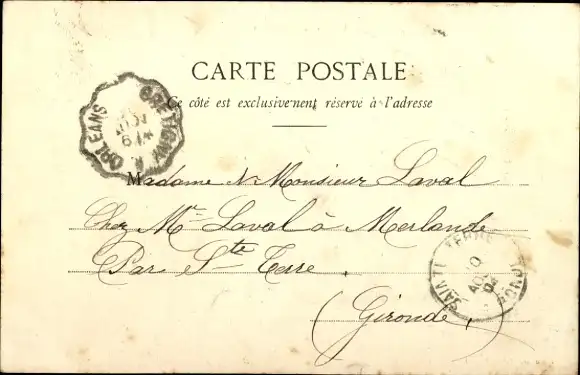 CARTE POSTALE
Ce côté est exclusivement réservé à l'adresse
ORLEANS
BRETIGNY
Madame & Monsieur Laval
Chez Mr Laval à Merlande
Par Ste Terre
(Gironde)
SAINTE TERRE
GIRONDE
10
AOU